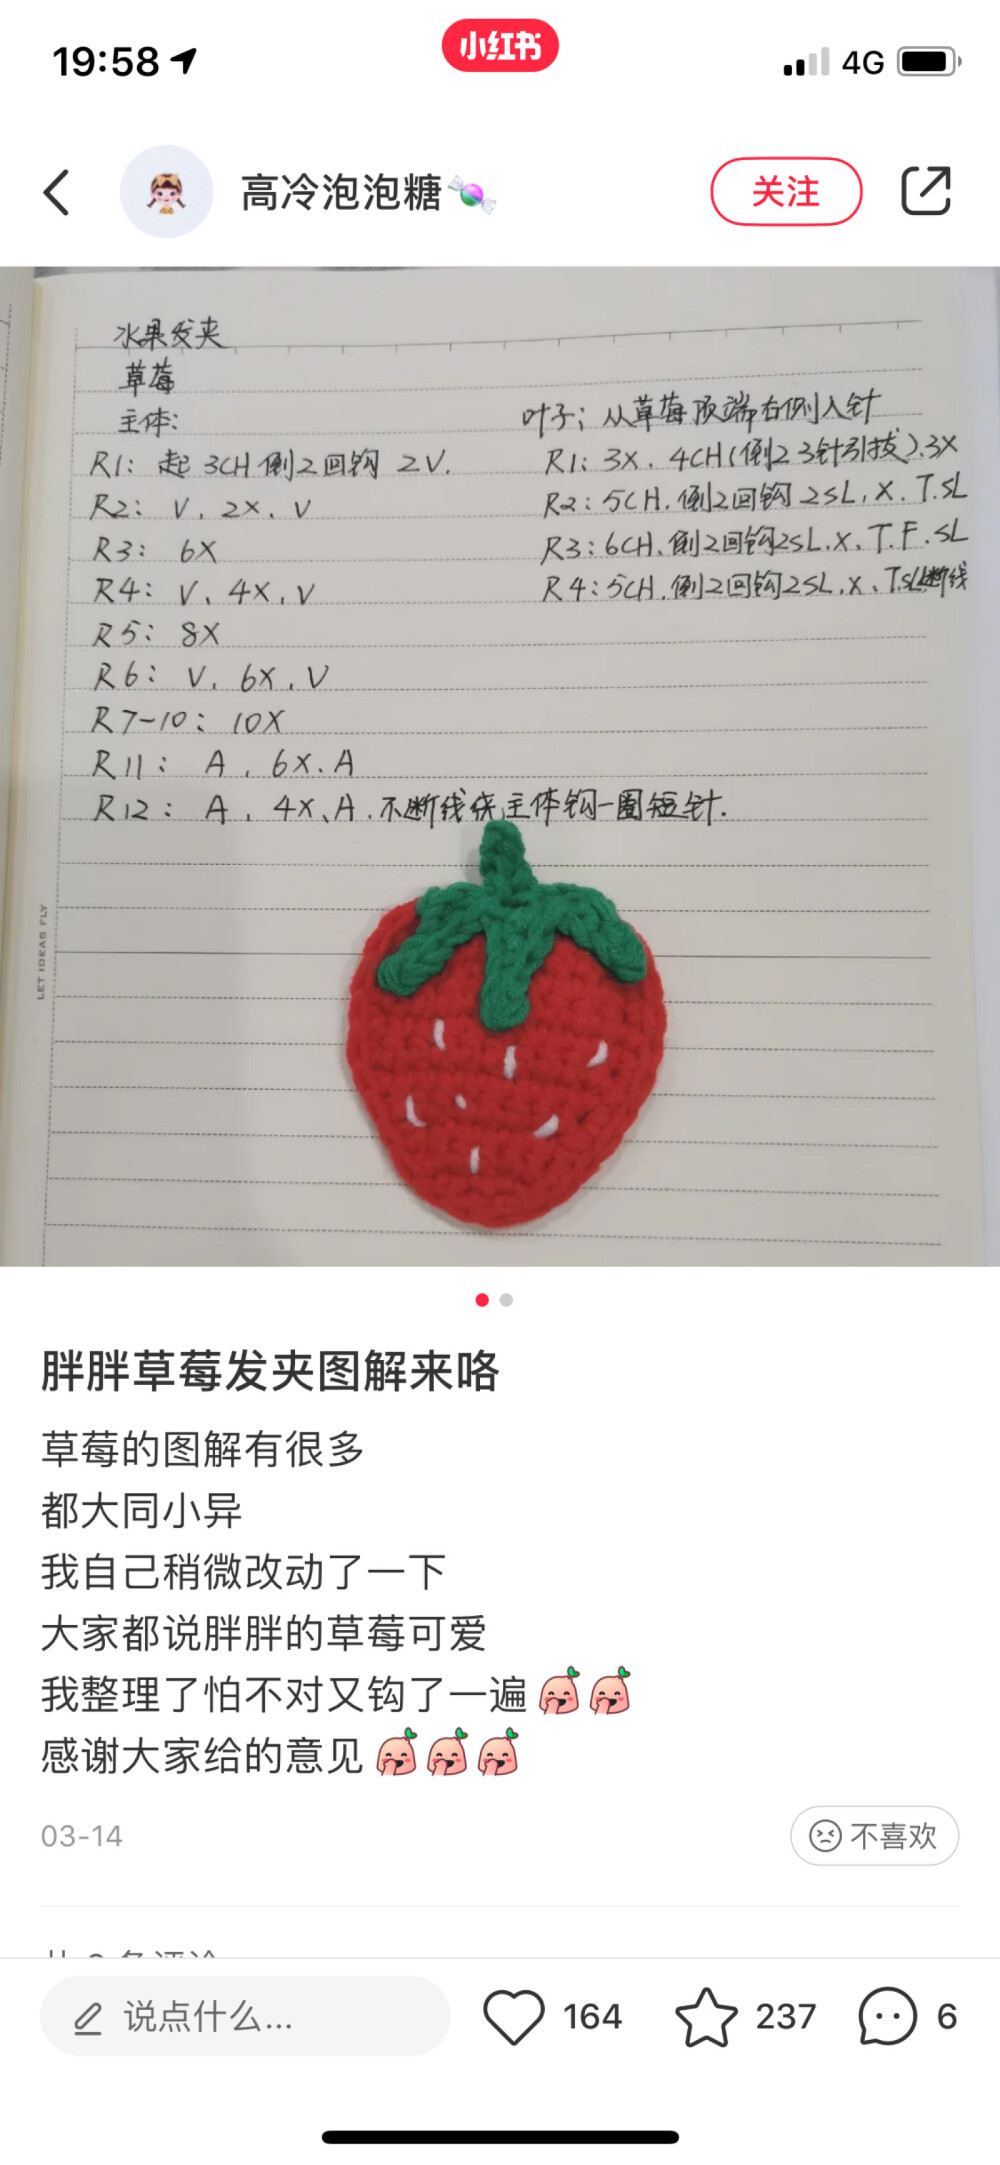 19:58
小红书
4G
高冷泡泡糖
关注
水果发夹
草莓
主体:
R1: 起3CH倒2回钩 2V.
R2: V, 2X, V
R3: 6X
R4: V, 4X, V
R5: 8X
R6: V, 6X, V
R7-10: 10X
R11: A, 6X, A
R12: A, 4X, A, 不断线绕主体钩一圈短针.
叶子; 从草莓顶端右侧入针
R1: 3X, 4CH(倒23针引拔), 3X
R2: 5CH, 倒2回钩2SL, X, T, SL
R3: 6CH, 倒2回钩2SL, X, T, F, SL
R4: 5CH, 倒2回钩2SL, X, T, SL断线
LET IDEAS FLY
胖胖草莓发夹图解来咯
草莓的图解有很多
都大同小异
我自己稍微改动了一下
大家都说胖胖的草莓可爱
我整理了怕不对又钩了一遍
感谢大家给的意见
03-14
不喜欢
说点什么...
164
237
6